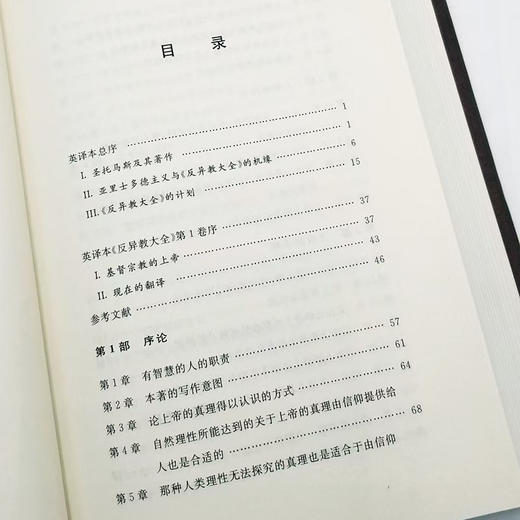 目 录
英译本总序 …… 1
I. 圣托马斯及其著作 …… 1
II. 亚里士多德主义与《反异教大全》的机缘 …… 6
III.《反异教大全》的计划 …… 15
英译本《反异教大全》第1卷序 …… 37
I. 基督宗教的上帝 …… 37
II. 现在的翻译 …… 43
参考文献 …… 46
第1部 序论
第1章 有智慧的人的职责 …… 57
第2章 本著的写作意图 …… 61
第3章 论上帝的真理得以认识的方式 …… 64
第4章 自然理性所能达到的关于上帝的真理由信仰提供给
人也是合适的 …… 68
第5章 那种人类理性无法探究的真理也是适合于由信仰